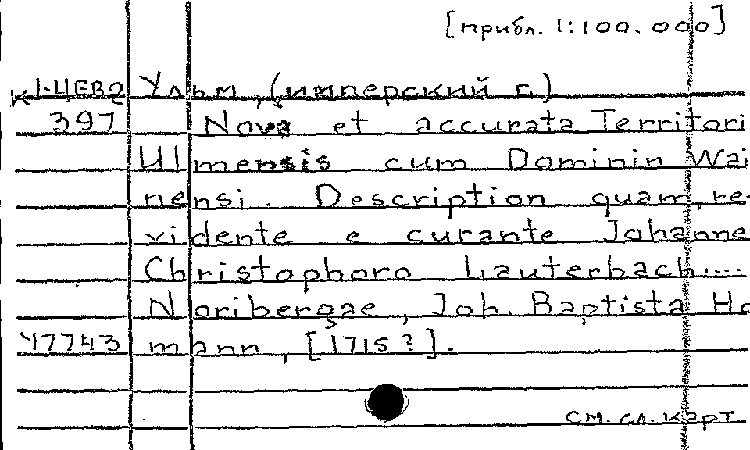 [прибл. 1:100.000]
К1-ЦЕВ2 Ульм, (имперский г.)
397 Nova et accurata Territori
Ulmensis cum Dominin Wai
nensi. Description quam, re-
vidente e curante Johanne
Christophoro Lauterbach...
Noribergae, Joh. Baptista Ho
У7743 mann, [1715?].
см. сл. карт